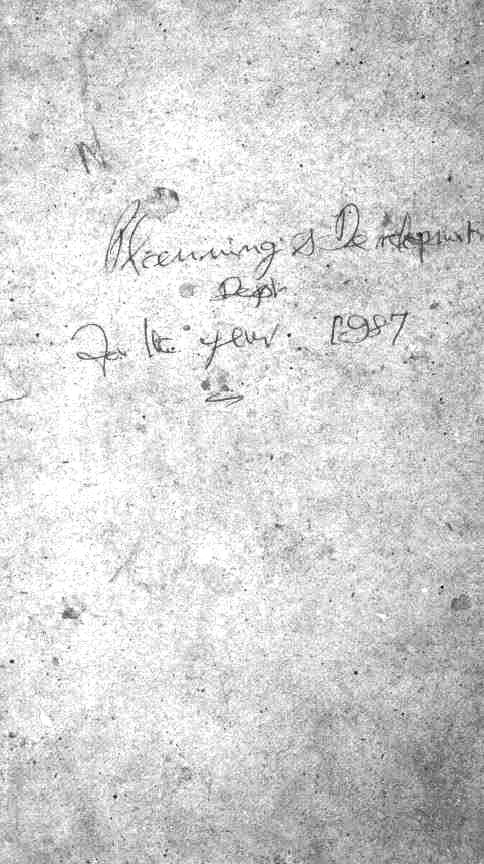 N
Planning & Development
Dept
For the year 1987